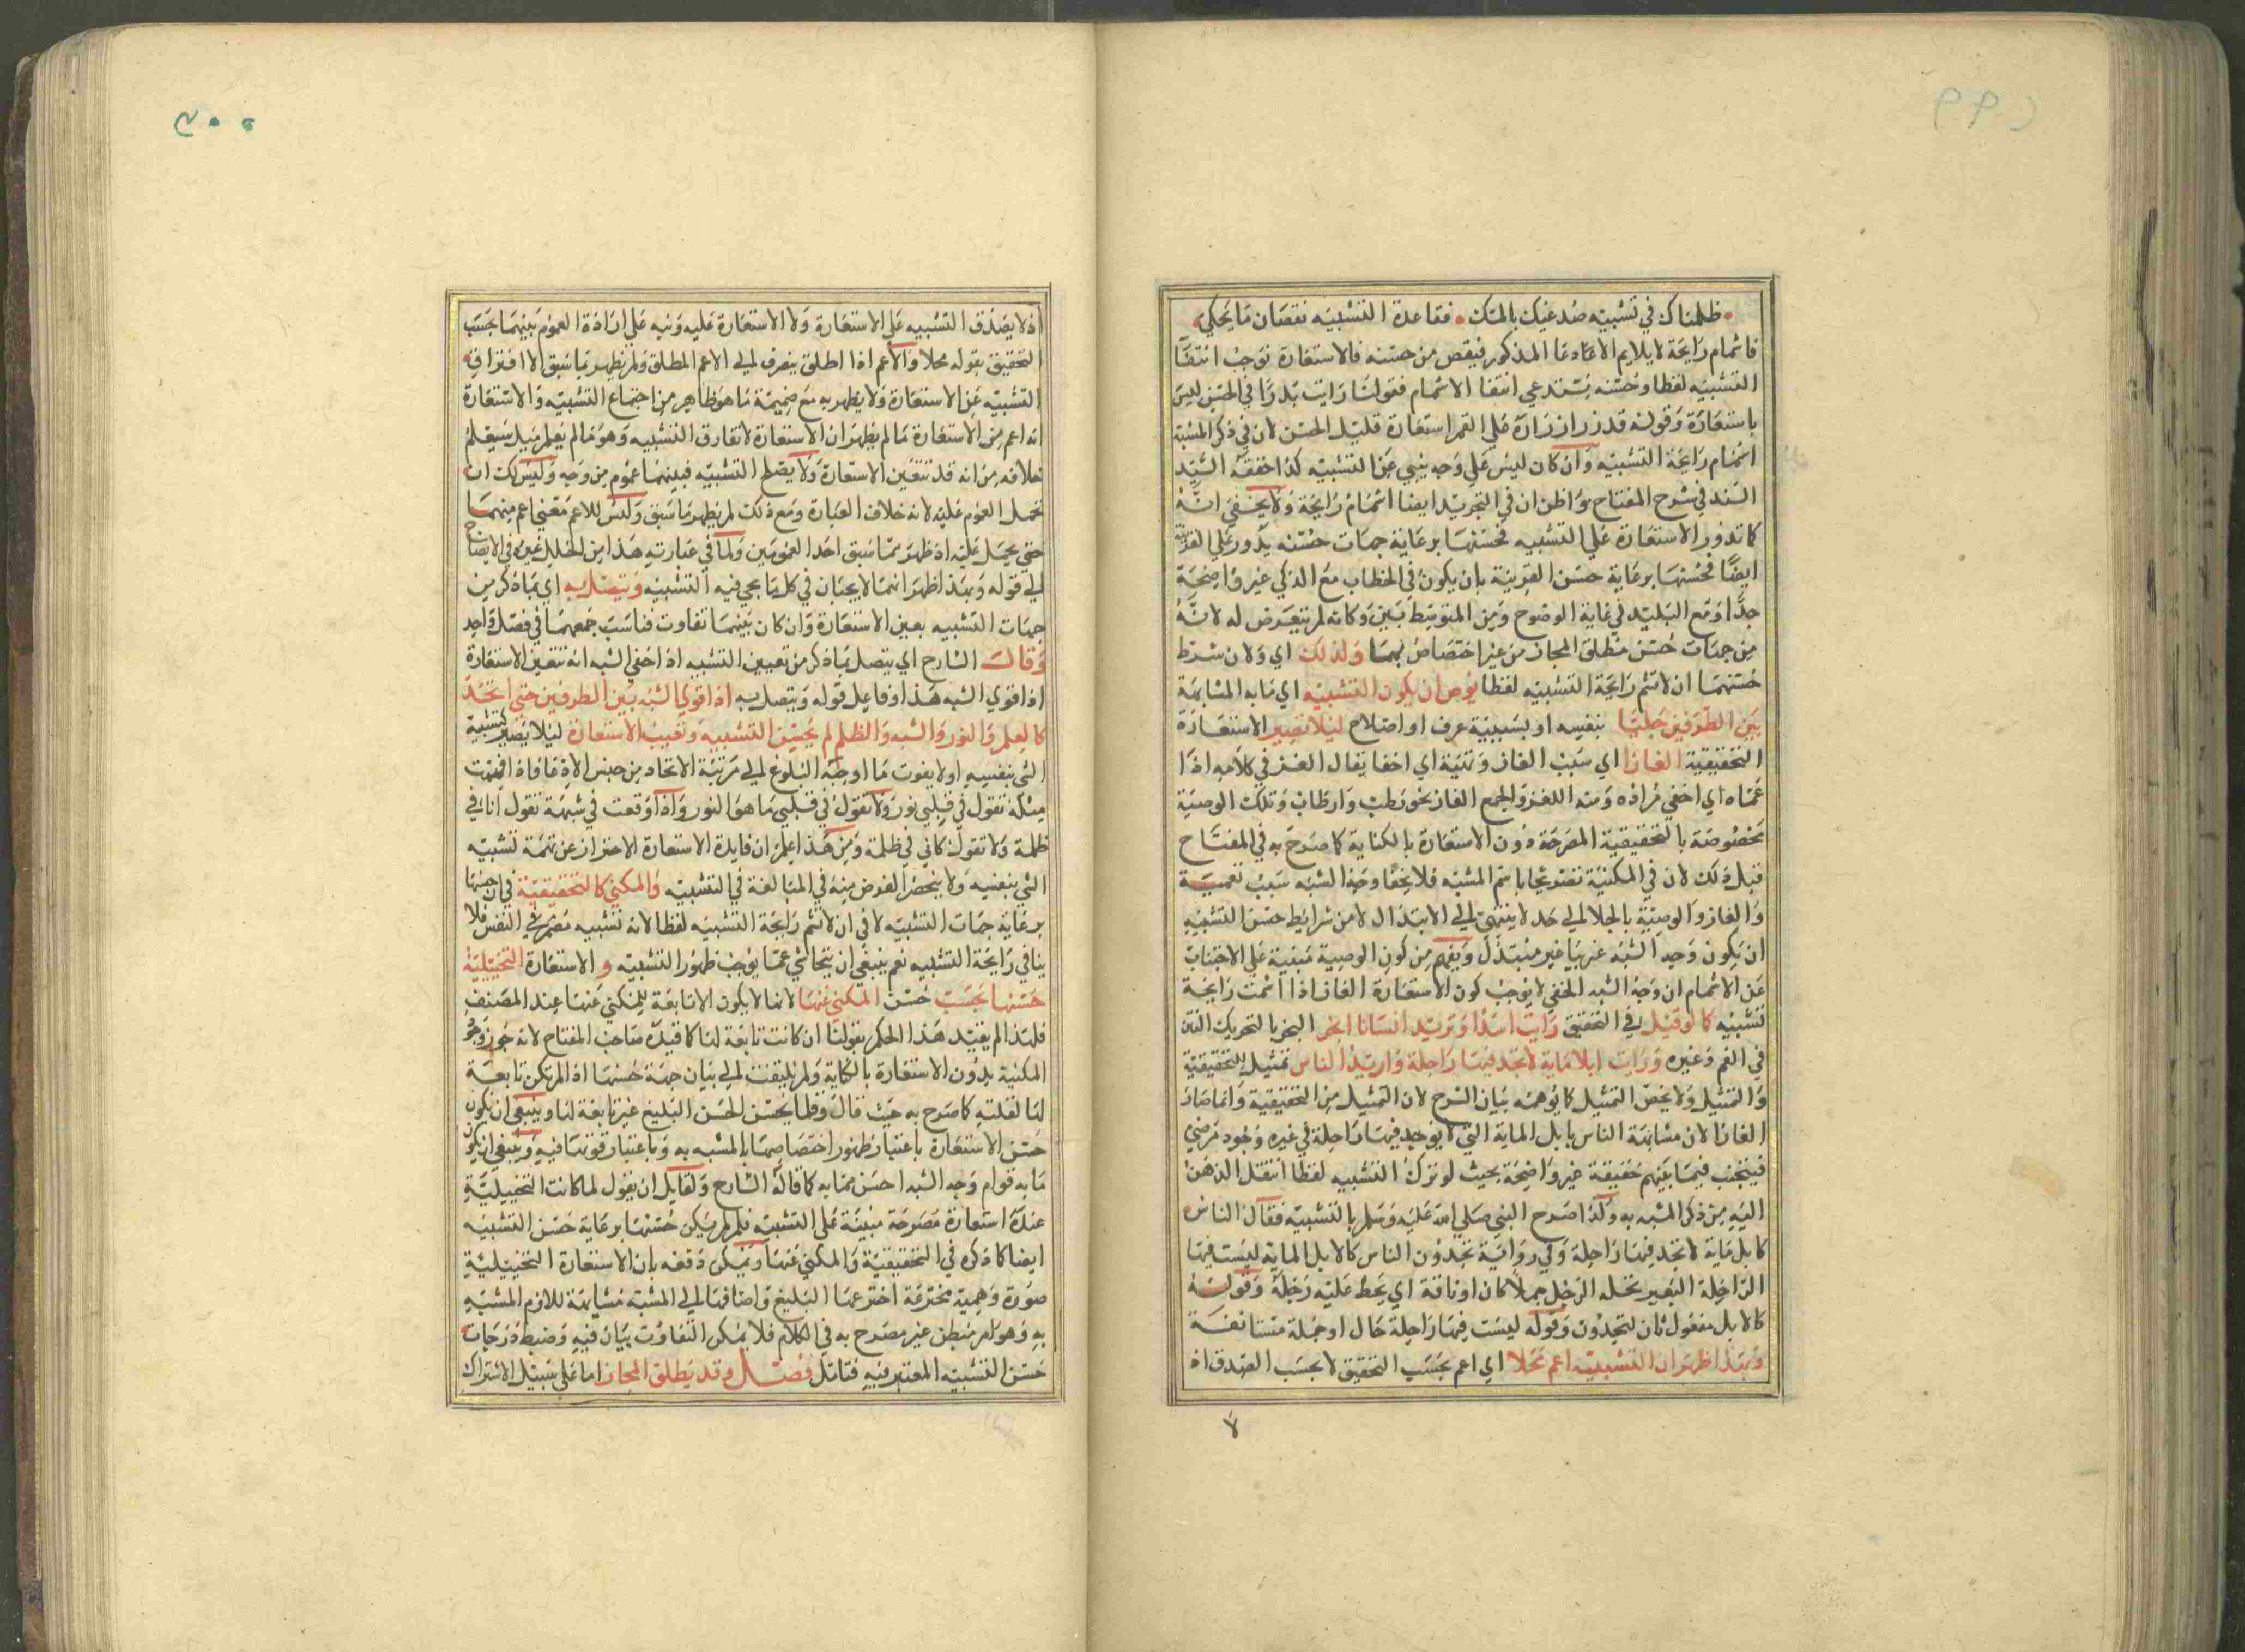 ظلمناك في تشبيه صدغيك بالمسك فقاعدة التشبيه نقصان ما يحكي
فاشمام رايحة لا يلايم الاتحاد عا المذكور فينقص من حسنه فالاستعارة توجب انتفآ
التشبيه لفظا وحسنه يستدعي انتفا الاشمام فقولنا رايت بدرا في الحسن ليس
باستعارة وقوله قد زر ازراره على القمر استعارة قليل الحسن لان في ذكر المشبه
اشمام رايحة التشبيه وان كان ليس على وجه ينبي عن التشبيه كذا حققه السيد
السند في شرح المفتاح واظن ان في التجريد ايضا اشمام رايحة ولا يخفى انه
كما تدور الاستعارة على التشبيه فحسنها برعاية جهات حسنه يدور على القرينة
ايضا فحسنها برعاية حسن القرينة بان يكون في الخطاب مع الذكي غير واضحة
جدا ومع البليد في غاية الوضوح ومن المتوسط بين وكانه لم يتعرض له لانه
من جهات حسن مطلق المجاز من غير اختصاص بهما ولذلك اي ولان شرط
حسنهما ان لا تشم رايحة التشبيه لفظا يوص ان يكون التشبيه اي ما به المشابهة
بين الطرفين جليا بنفسه او بسببية عرف او اصلاح ليلا تصير الاستعارة
التحقيقية الغازا اي سبب الغاز وتعمية اي اخفا يقال الغز في كلامه اذا
عماه اي اخفى مراده ومنه اللغز والجمع الغاز نحو رطب وارطاب وتلك الوصية
مخصوصة بالتحقيقية المصرحة دون الاستعارة بالكناية كما صرح به في المفتاح
قبل ذلك لان في المكنية تصريحا باسم المشبه فلا يخفا وجه الشبه سبب تعمية
والغاز والوصية بالجلا الى حد لا ينتهي الى الابتذال لا من شرايط حسن التشبيه
ان يكون وجه الشبه غريبا غير مبتذل ويفهم من كون الوصية مبنية على الاجتناب
عن الاشمام ان وجه الشبه الخفي لا يوجب كون الاستعارة الغاز اذا اشمت رايحة
تشبيه كما لو قيل في التحقيق رايت اسدا وتريد انسانا ابخر البخر بالتحريك النتن
في الفم وغيره ورايت ابلا ماية لا تجد فيها راحلة واريد الناس تمثيل للتحقيقية
والتمثيل ولا يخص التمثيل كما يوهمه بيان الشرح لان التمثيل من التحقيقية وانما صار
الغازا لان مشابهة الناس بابل الماية التي لا يوجد فيها راحلة في غيره وجود مرضي
فيتجنب فيما بينهم حقيقة غير واضحة بحيث لو ترك التشبيه لفظا انتقل الذهن
اليه من ذكر المشبه به ولذا صرح النبي صلى الله عليه وسلم بالتشبيه فقال الناس
كابل ماية لا تجد فيها راحلة وفي رواية تجدون الناس كالابل الماية ليست فيها
الراحلة البعير يحمله الرحل جملا كان او ناقة اي يحط عليه رحله وقوله
كالابل مفعول ثان لتجدون وقوله ليست فيها راحلة حال او جملة مستانفة
وبهذا ظهر ان التشبيه اعم محلا اي اعم بحسب التحقيق لا بحسب الصدق اذ
لا
اذ لا يصدق التشبيه على الاستعارة ولا الاستعارة عليه ونبه على ارادة العموم بينهما بحسب
التحقيق بقوله محلا والاعم اذا اطلق ينصرف الى الاعم المطلق ولم يظهر بما سبق الا افتراق
التشبيه عن الاستعارة ولا يظهر به مع ضميمة ما هو ظاهر من اجتماع التشبيه والاستعارة
انه اعم من الاستعارة ما لم يظهر ان الاستعارة لا تفارق التشبيه وهو ما لم يعلم بل سيعلم
خلافه من انه قد تتعين الاستعارة ولا يصلح التشبيه فبينهما عموم من وجه وليس لك ان
تحمل العموم عليه لانه خلاف العبارة ومع ذلك لم يظهر ما سبق وليس للاعم معنى اعم منهما
حتى يحمل عليه اذ ظهر مما سبق احد العمومين ولما في عبارته هذا من الخلل غيره في الايضاح
الى قوله وبهذا ظهر انهما لا يجبان في كل ما يجي فيه التشبيه ويتصل به اي بما ذكر من
جهات التشبيه بعين الاستعارة وان كان بينهما تفاوت فناسب جمعهما في فصل واحد
وقال الشارح اي يتصل بما ذكر من تعيين التشبيه اذا خفي الشبه انه تتعين الاستعارة
اذا قوي الشبه هذا وفاعل قوله ويتصل به اذا قوي الشبه بين الطرفين حتى اتحدا
كالعلم والنور والشبه والظلم لم يحسن التشبيه وتعينت الاستعارة ليلا يصير كتشبيه
الشي بنفسه او لا يفوت ما اوجبه البلوغ الى مرتبة الاتحاد من حبس الادعا فاذا فهمت
مسلة تقول في قلبي نور ولا تقول في قلبي ما هو النور واذا وقعت في شبهة تقول انا في
ظلمة ولا تقول كاني في ظلمة ومن هذا اعلم ان فايدة الاستعارة الاحتراز عن تهمة تشبيه
الشي بنفسه ولا ينحصر الغرض منه في المبالغة في التشبيه والمكني كالتحقيقية في ان حسنها
برعاية جهات التشبيه لا في ان لا تشم رايحة التشبيه لفظا لانه تشبيه مضمر في النفس فلا
ينافي رايحة التشبيه نعم ينبغي ان يتحاشى عما يوجب ظهور التشبيه و الاستعارة التخييلية
حسنها بحسب حسن المكني عنها لانها لا يكون الا تابعة للمكني عنها عند المصنف
فلهذا لم يقيد هذا الحكم بقولنا ان كانت تابعة لها كما قيده صاحب المفتاح لانه جوز وجود
المكنية بدون الاستعارة بالكناية ولم يلتفت الى بيان جهة حسنها اذا لم تكن تابعة
لها لقلته كما صرح به حيث قال وقلما يحسن الحسن البليغ غير تابعة لها وينبغي ان يكون
حسن الاستعارة باعتبار ظهور اختصاصها بالمشبه به وباعتبار قوتها فيه وينبغي ان يكون
ما به قوام وجه الشبه احسن مما به كما قاله الشارح ولقايل ان يقول لما كانت التخييلية
عنده استعارة مصرحة مبنية على التشبيه فلم لم يكن حسنها برعاية حسن التشبيه
ايضا كما ذكره في التحقيقية والمكني عنها ويمكن دفعه بان الاستعارة التخييلية
صورة وهمية مخترعة اخترعها البليغ واضافها الى المشبه مشابهة للازم المشبه
به وهو امر مبطن غير مصرح به في الكلام فلا يمكن التفاوت بيان فيه وضبط درجات
حسن التشبيه المعتبر فيه فتامل فصل وقد يطلق المجاز اما على سبيل الاشتراك